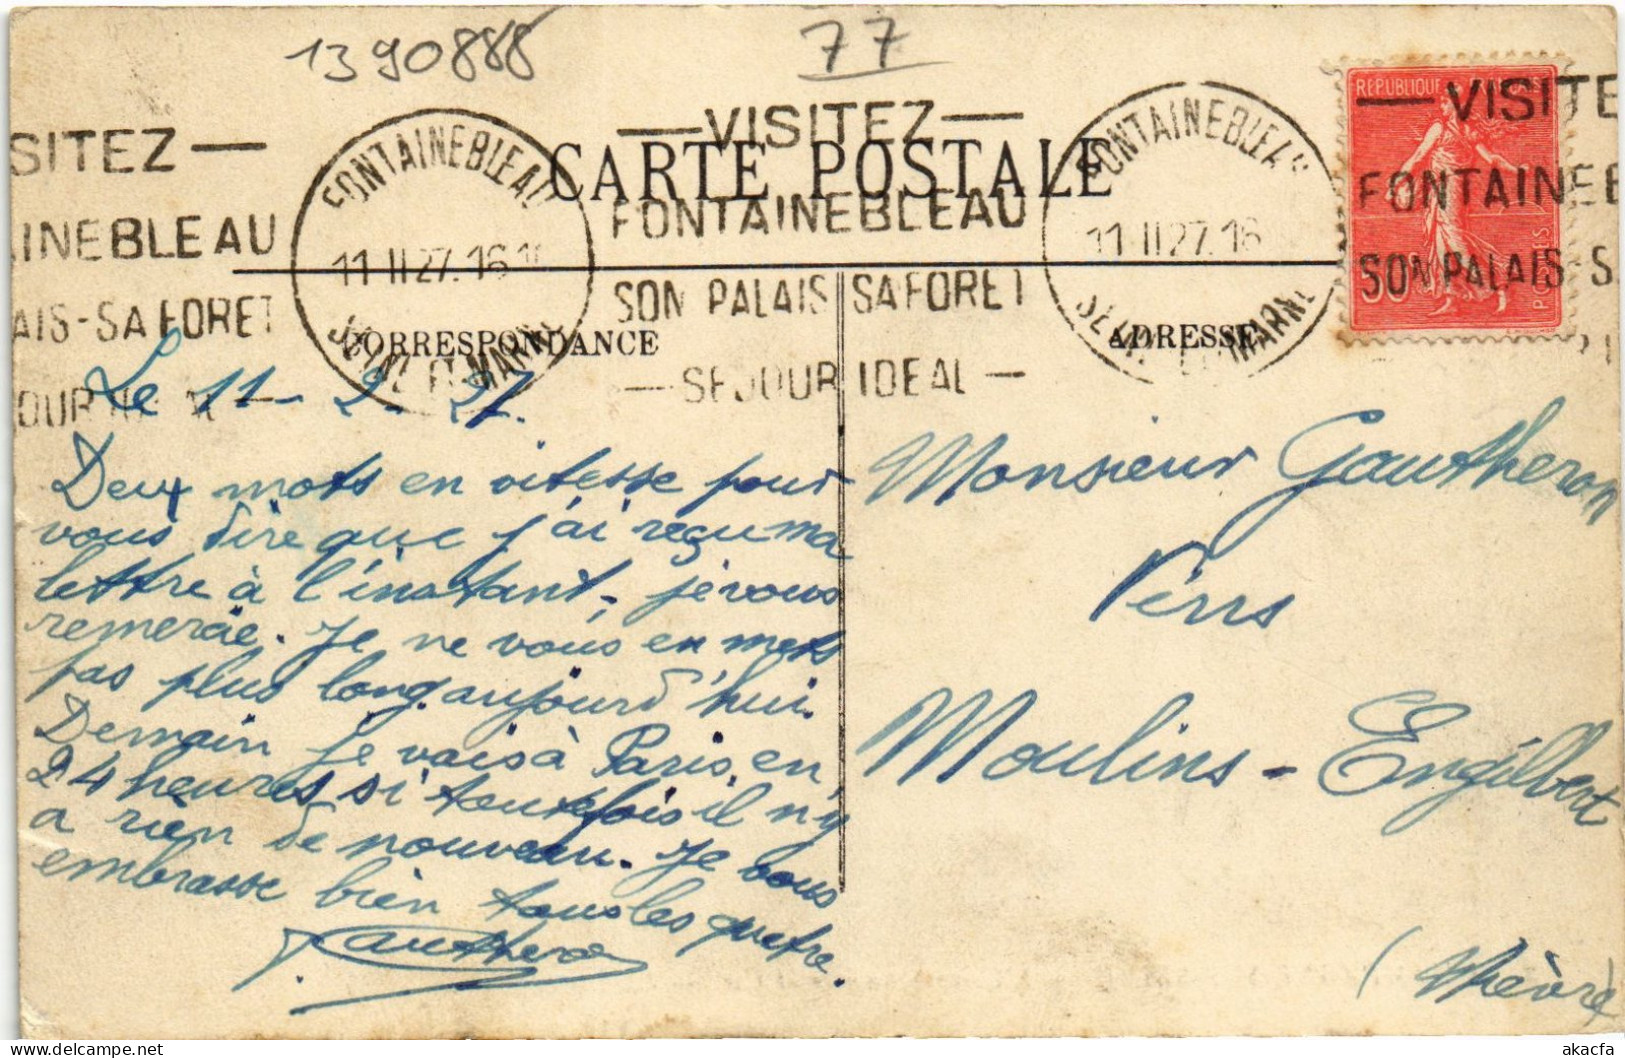 1390888
77
SITEZ —
INEBLEAU
AIS-SA FORET
FONTAINEBLEAU
11 II 27. 16
SEINE ET MARNE
— VISITEZ —
FONTAINEBLEAU
SON PALAIS SA FORET
— SEJOUR IDEAL —
FONTAINEBLEAU
11 II 27. 16
SEINE ET MARNE
— VISITE
FONTAINEB
SON PALAIS-S
REPUBLIQUE FRANÇAISE
50
POSTES
CARTE POSTALE
CORRESPONDANCE
ADRESSE
Le 11-2-27.
Deux mots en vitesse pour
vous dire que j'ai reçu ma
lettre à l'instant, je vous
remercie. Je ne vous en mets
pas plus long aujourd'hui.
Demain je vais à Paris, en
24 heures si toutefois il n'y
a rien de nouveau. Je vous
embrasse bien tous les quatre.
J. Gautheron
Monsieur Gautheron
Moulins-Engilbert
(Nièvre)
akacfa